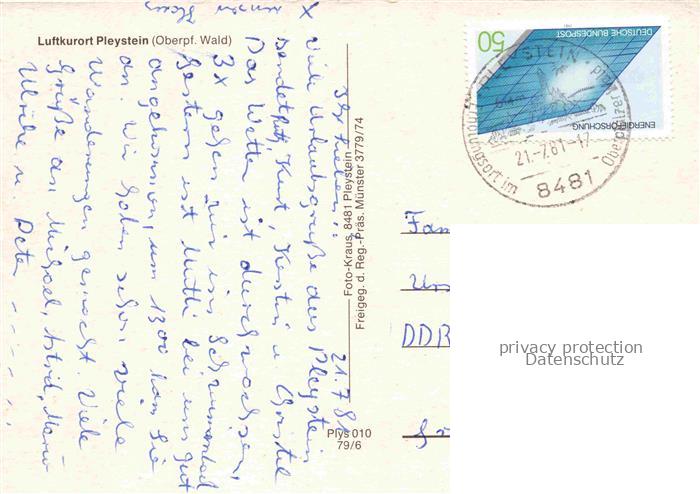 Luftkurort Pleystein (Oberpf. Wald)
21.7.81
Ihr Lieben!!
x Viele Urlaubsgrüße aus Pleystein
sendet Kurt, Kerstin u. Christel
Das Wetter ist durchwachsen,
3x gehen wir ins Schwimmbad
Gestern ist Mutti bei uns gut
angekommen, um 1300 kam sie
an. Wir haben schon viele
Wanderungen gemacht. Viele
Grüße an Michael, Astrid, Mario
Ulrike u. Peter
x unsern
Foto-Kraus, 8481 Pleystein
Freigeg. d. Reg.-Präs. Münster 3779/74
Plys 010
79/6
DEUTSCHE BUNDESPOST
50
ENERGIEFORSCHUNG
1981
PLEYSTEIN
21.-7.81-17
8481
Erholungsort im Oberpfälzer
Fam
DDR
privacy protection
Datenschutz